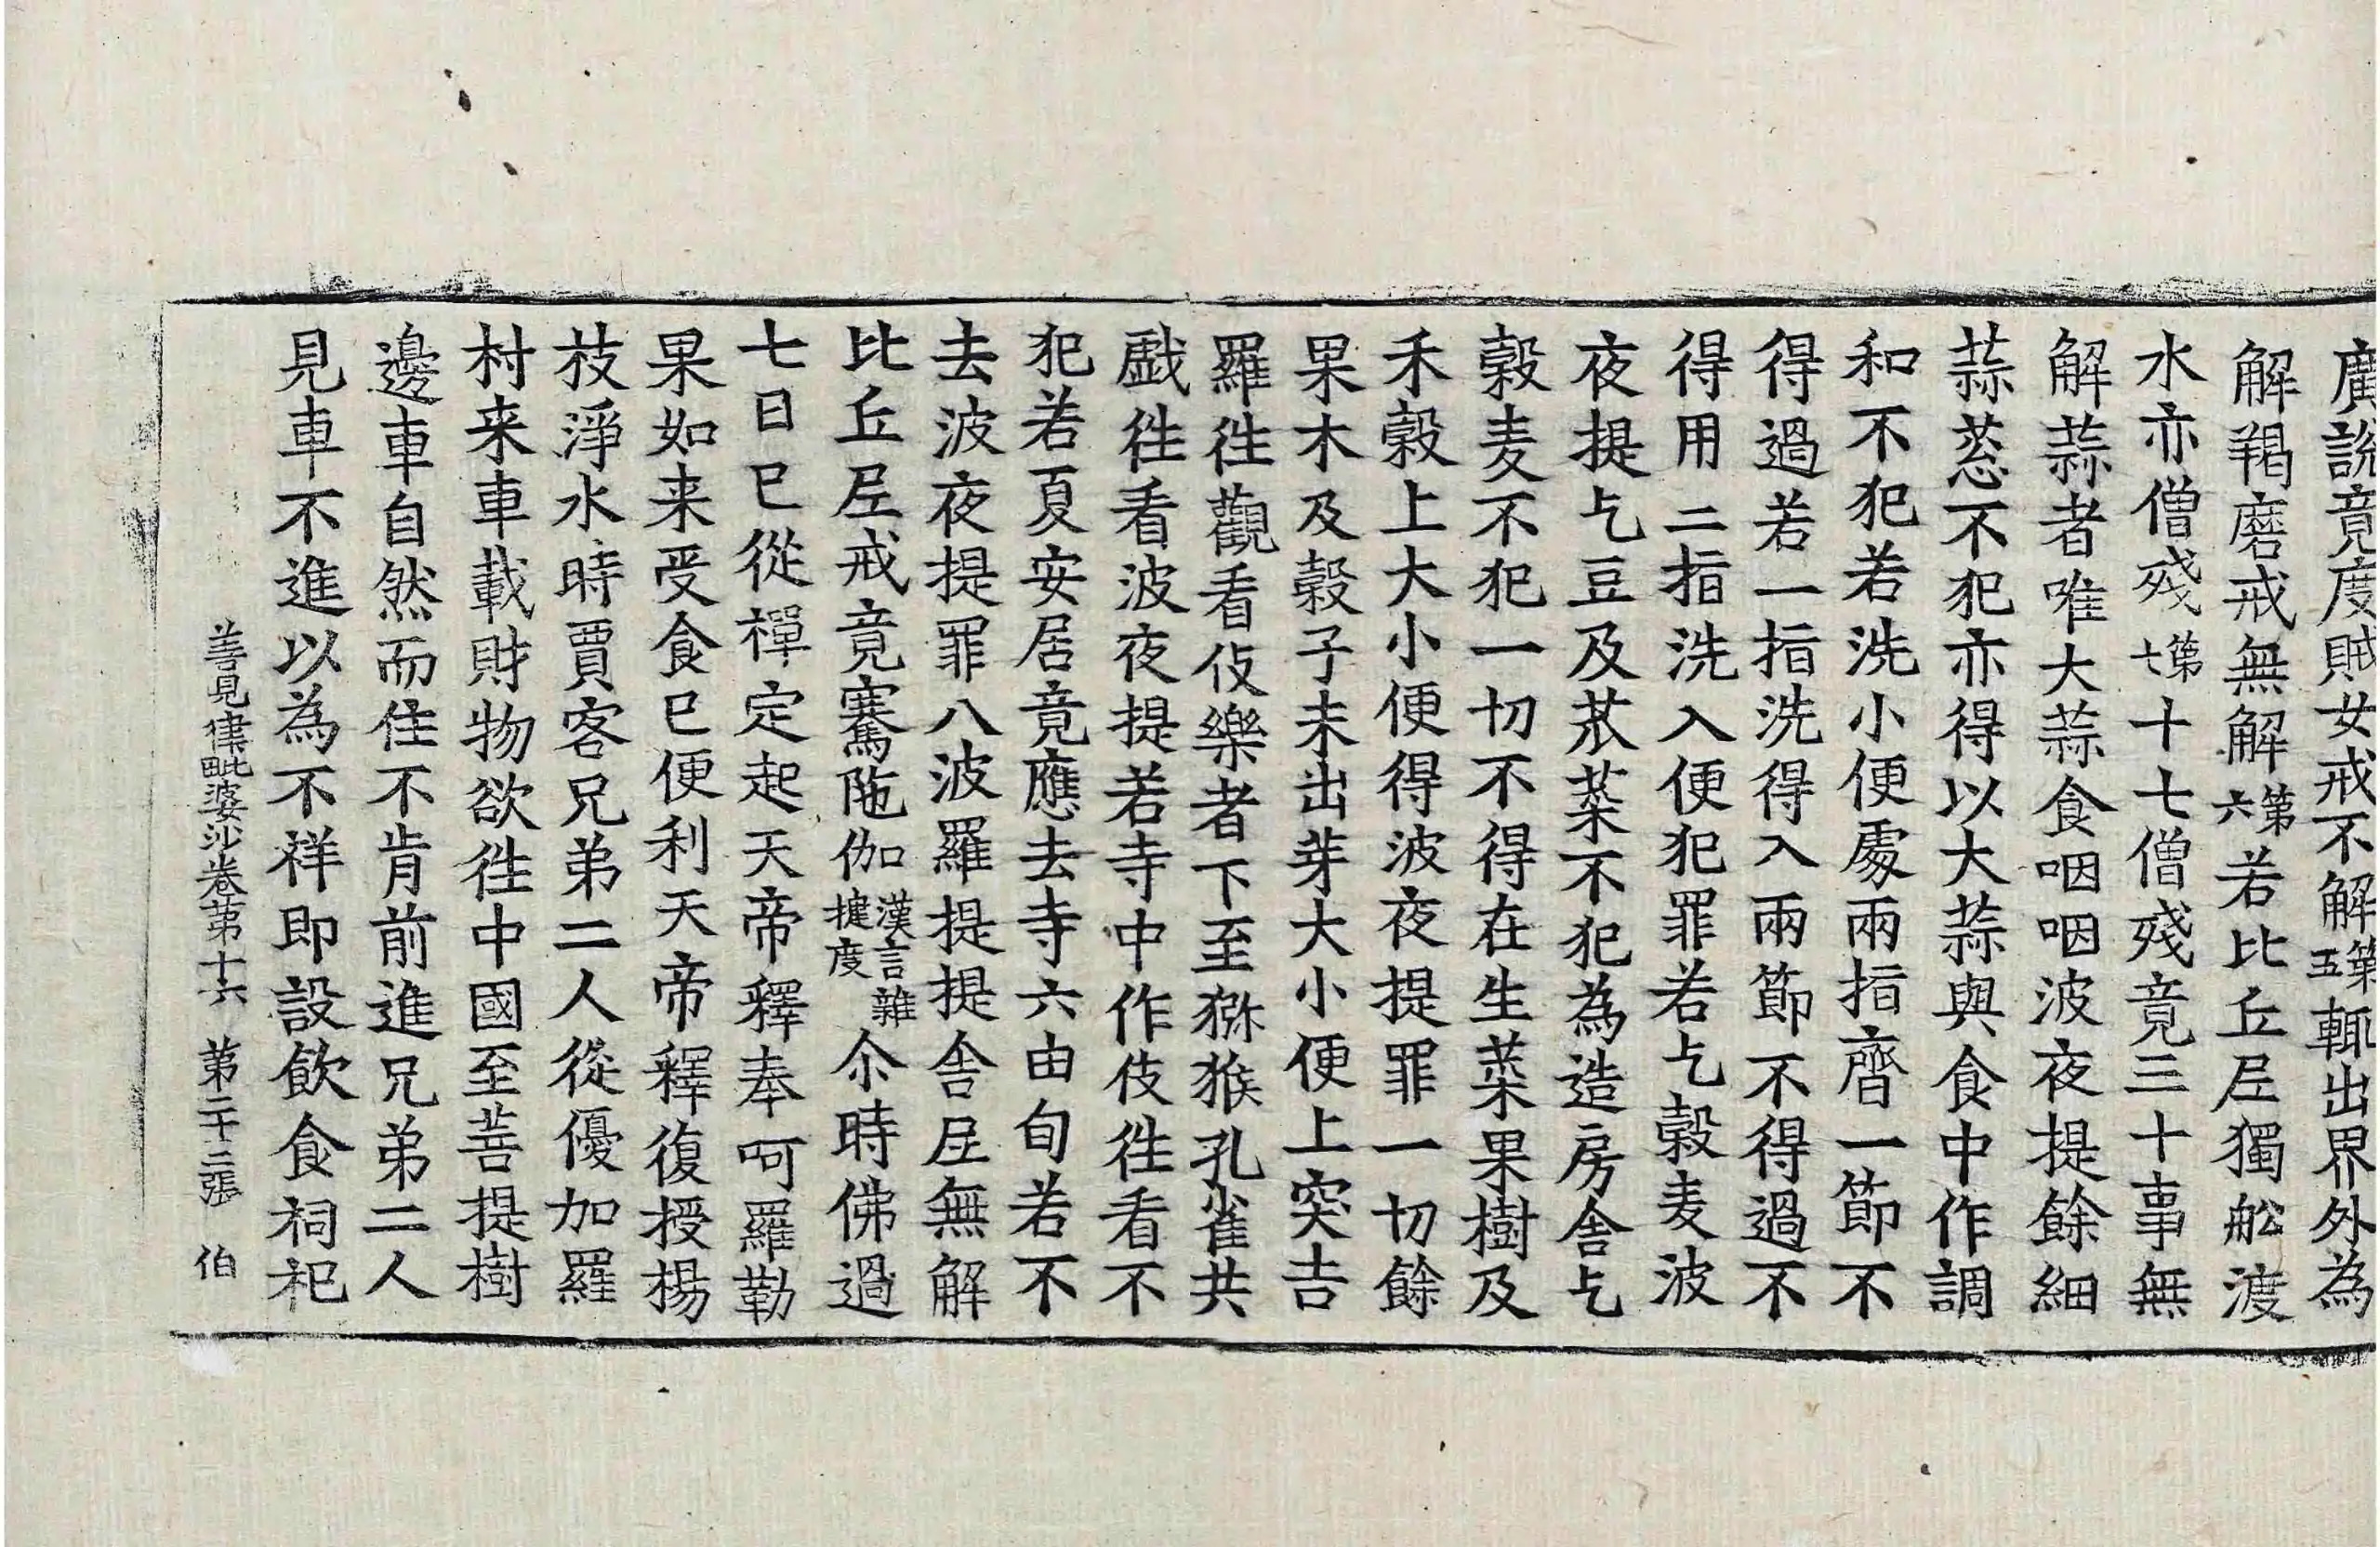 廣說竟度賊女戒不解第五輒出界外為
解羯磨戒無解第六若比丘尼獨舩渡
水亦僧殘第七十七僧殘竟三十事無
解蒜者唯大蒜食咽咽波夜提餘細
蒜葱不犯亦得以大蒜與食中作調
和不犯若洗小便處兩指齊一節不
得過若一指洗得入兩節不得過不
得用二指洗入便犯罪若乞穀麦波
夜提乞豆及苽菜不犯為造房舎乞
穀麦不犯一切不得在生菜果樹及
禾穀上大小便得波夜提罪一切餘
果木及穀子未出芽大小便上突吉
羅徃觀看伎樂者下至猕猴孔雀共
戯徃看波夜提若寺中作伎徃看不
犯若夏安居竟應去寺六由旬若不
去波夜提罪八波羅提提舎尼無解
比丘尼戒竟騫陁伽漢言雜揵度尒時佛過
七日已從禪定起天帝釋奉呵羅勒
果如来受食已便利天帝釋復授楊
枝淨水時賈客兄弟二人從優加羅
村来車載財物欲徃中國至菩提樹
邊車自然而住不肯前進兄弟二人
見車不進以為不祥即設飲食祠祀
善見律毗婆沙卷苐十六 苐二十二張 伯